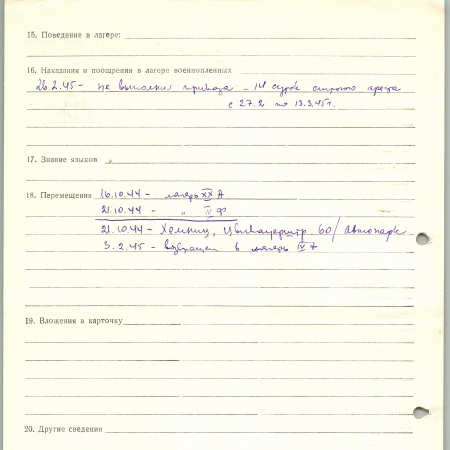 15. Поведение в лагере:
16. Наказания и поощрения в лагере военнопленных
26.2.45 - не выполнил приказа - 14 суток строгого ареста
с 27.2 по 13.3.45 г.
17. Знание языков
18. Перемещения 16.10.44 - лагерь XX А
21.10.44 - " IV Ф
21.10.44 - Хемниц, Цвикауерштр. 60/ Автопарк
3.2.45 - возвращен в лагерь IV Ф
19. Вложения в карточку
20. Другие сведения